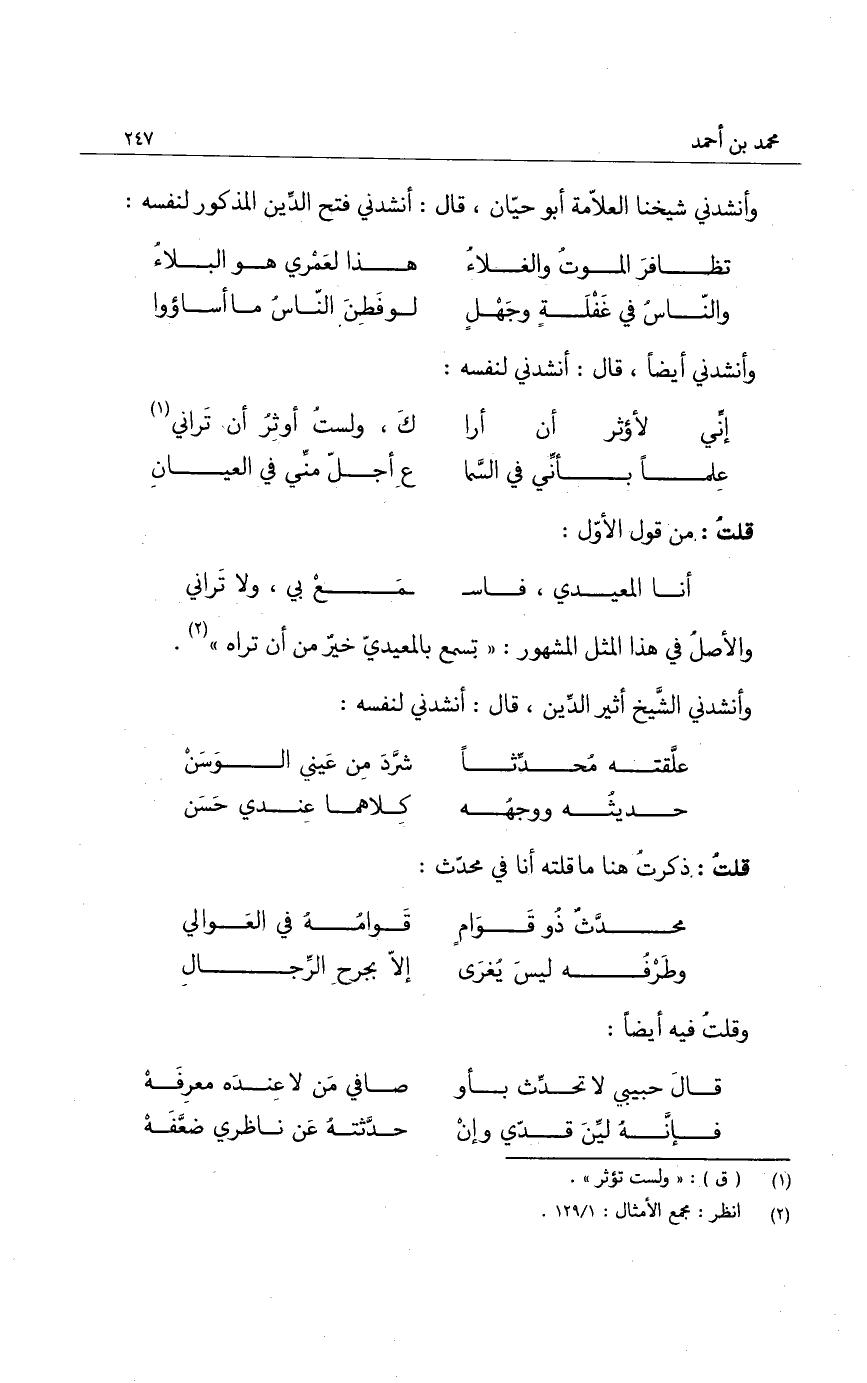 محمد بن أحمد ٢٤٧
وأنشدني شيخنا العلاّمة أبو حيّان ، قال : أنشدني فتح الدِّين المذكور لنفسه :
تظافرَ الموتُ والغلاءُ هذا لعَمْري هو البلاءُ
والنّاسُ في غَفْلَةٍ وجَهْلٍ لو فَطِنَ النّاسُ ما أساؤوا
وأنشدني أيضاً ، قال : أنشدني لنفسه :
إنِّي لأؤثر أن أرا كَ ، ولستُ أوثرُ أن تَراني(١)
علماً بأنِّي في السَّما عِ أجلّ منِّي في العيانِ
قلتُ : من قول الأوّل :
أنا المعيدي ، فاسـ ـمَعْ بي ، ولا تَراني
والأصلُ في هذا المثل المشهور : « تسمع بالمعيديّ خيرٌ من أن تراه »(٢) .
وأنشدني الشَّيخ أثير الدِّين ، قال : أنشدني لنفسه :
علَّقته مُحدِّثاً شرَّدَ مِن عَيني الوَسَنْ
حديثُه ووجهُه كِلاهما عِندي حَسَن
قلتُ : ذكرتُ هنا ما قلته أنا في محدّث :
محدَّثٌ ذو قَوَامٍ قَوامُهُ في العَوالي
وطَرْفُه ليسَ يُغرَى إلاّ بجرحِ الرِّجالِ
وقلتُ فيه أيضاً :
قالَ حبيبي لا تحدّث بأو صافي مَن لا عِندَه معرفَهْ
فإنَّهُ ليِّنَ قدّي وإنْ حدَّثتهُ عَن ناظري ضعَّفَهْ
(١) ( ق ) : « ولست تؤثر » .
(٢) انظر : مجمع الأمثال : ١٢٩/١ .